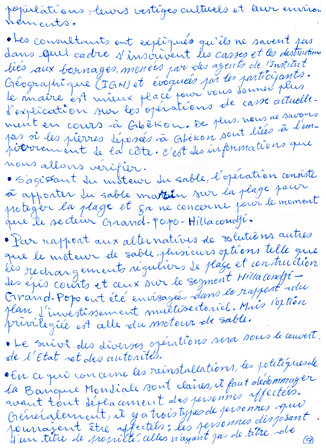 populations, leurs vestiges culturels et leur environ
nements.
• Les consultants ont expliqués qu'ils ne savent pas
dans quel cadre s'inscrivent les casses et les destructions
liés aux bornages menées par des agents de l'Institut
Géographique (IGN) et évoquées par les participants.
Le maire est mieux placé pour vous donner plus
d'explication sur les opérations de casse actuelle-
ment en cours à Gbèkon. De plus, nous ne savons
pas si les pierres déposés à Gbékon sont liés à l'em-
pierrement de la côte. C'est des informations que
nous allons vérifier.
• S'agissant du moteur de sable, l'opération consiste
à apporter du sable marin sur la plage pour
protéger la plage et ça ne concerne pour le moment
que le secteur Grand-Popo-Hillacondji.
• Par rapport aux alternatives de solutions autres
que le moteur de sable, plusieurs options telle que
les rechargements réguliers de plage et construction
des épis courts et ceux sur le segment Hillacondji-
Grand-Popo ont été envisagées dans le rapport du
plan d'investissement multisectoriel. Mais l'option
privilégiée est celle du moteur de sable.
• Le suivi des diverses opérations sera sous le couvert
de l'Etat et des autorités.
• En ce qui concerne les réinstallations, les politiques de
la Banque Mondiale sont claires, il faut dédommager
avant tout déplacement des personnes affectées.
Généralement, il y a trois types de personnes qui
pourraient être affectées : les personnes disposant
d'un titre de propriété, celles n'ayant pas de titre de